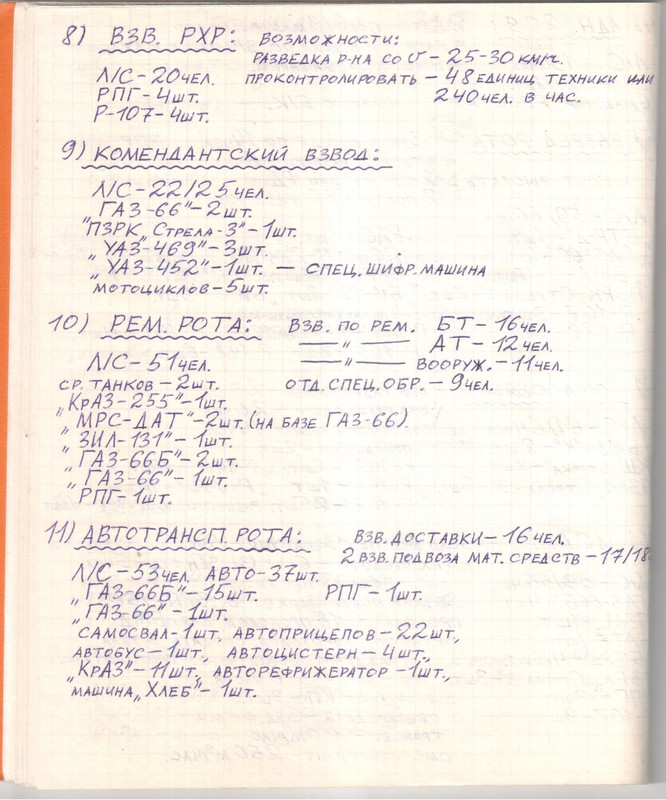 8) ВЗВ. РХР: ВОЗМОЖНОСТИ:
РАЗВЕДКА Р-НА СО V - 25-30 КМ/Ч.
Л/С - 20 ЧЕЛ. ПРОКОНТРОЛИРОВАТЬ - 48 ЕДИНИЦ ТЕХНИКИ ИЛИ
РПГ - 4 ШТ. 240 ЧЕЛ. В ЧАС.
Р-107 - 4 ШТ.
9) КОМЕНДАНТСКИЙ ВЗВОД:
Л/С - 22/25 ЧЕЛ.
„ГАЗ-66" - 2 ШТ.
„ПЗРК „СТРЕЛА-3" - 1 ШТ.
„УАЗ-469" - 3 ШТ.
„УАЗ-452" - 1 ШТ. — СПЕЦ. ШИФР. МАШИНА
МОТОЦИКЛОВ - 5 ШТ.
10) РЕМ. РОТА: ВЗВ. ПО РЕМ. БТ - 16 ЧЕЛ.
— „ — АТ - 12 ЧЕЛ.
Л/С - 51 ЧЕЛ. — „ — ВООРУЖ. - 11 ЧЕЛ.
СР. ТАНКОВ - 2 ШТ. ОТД. СПЕЦ. ОБР. - 9 ЧЕЛ.
„КрАЗ-255" - 1 ШТ.
„МРС-ДАТ" - 2 ШТ. (НА БАЗЕ ГАЗ-66).
„ЗИЛ-131" - 1 ШТ.
„ГАЗ-66Б" - 2 ШТ.
„ГАЗ-66" - 1 ШТ.
РПГ - 1 ШТ.
11) АВТОТРАНСП. РОТА: ВЗВ. ДОСТАВКИ - 16 ЧЕЛ.
2 ВЗВ. ПОДВОЗА МАТ. СРЕДСТВ - 17/18
Л/С - 53 ЧЕЛ. АВТО - 37 ШТ.
„ГАЗ-66Б" - 15 ШТ. РПГ - 1 ШТ.
„ГАЗ-66" - 1 ШТ.
САМОСВАЛ - 1 ШТ., АВТОПРИЦЕПОВ - 22 ШТ.,
АВТОБУС - 1 ШТ., АВТОЦИСТЕРН - 4 ШТ.,
„КрАЗ" - 11 ШТ., АВТОРЕФРИЖЕРАТОР - 1 ШТ.,
МАШИНА „ХЛЕБ" - 1 ШТ.